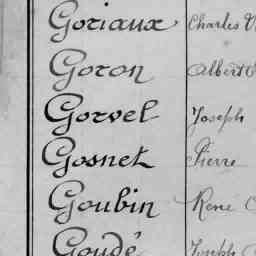 Goriaux Charles
Goron Albert
Gorvel Joseph
Gosnet Pierre
Goubin René
Goudé Joseph